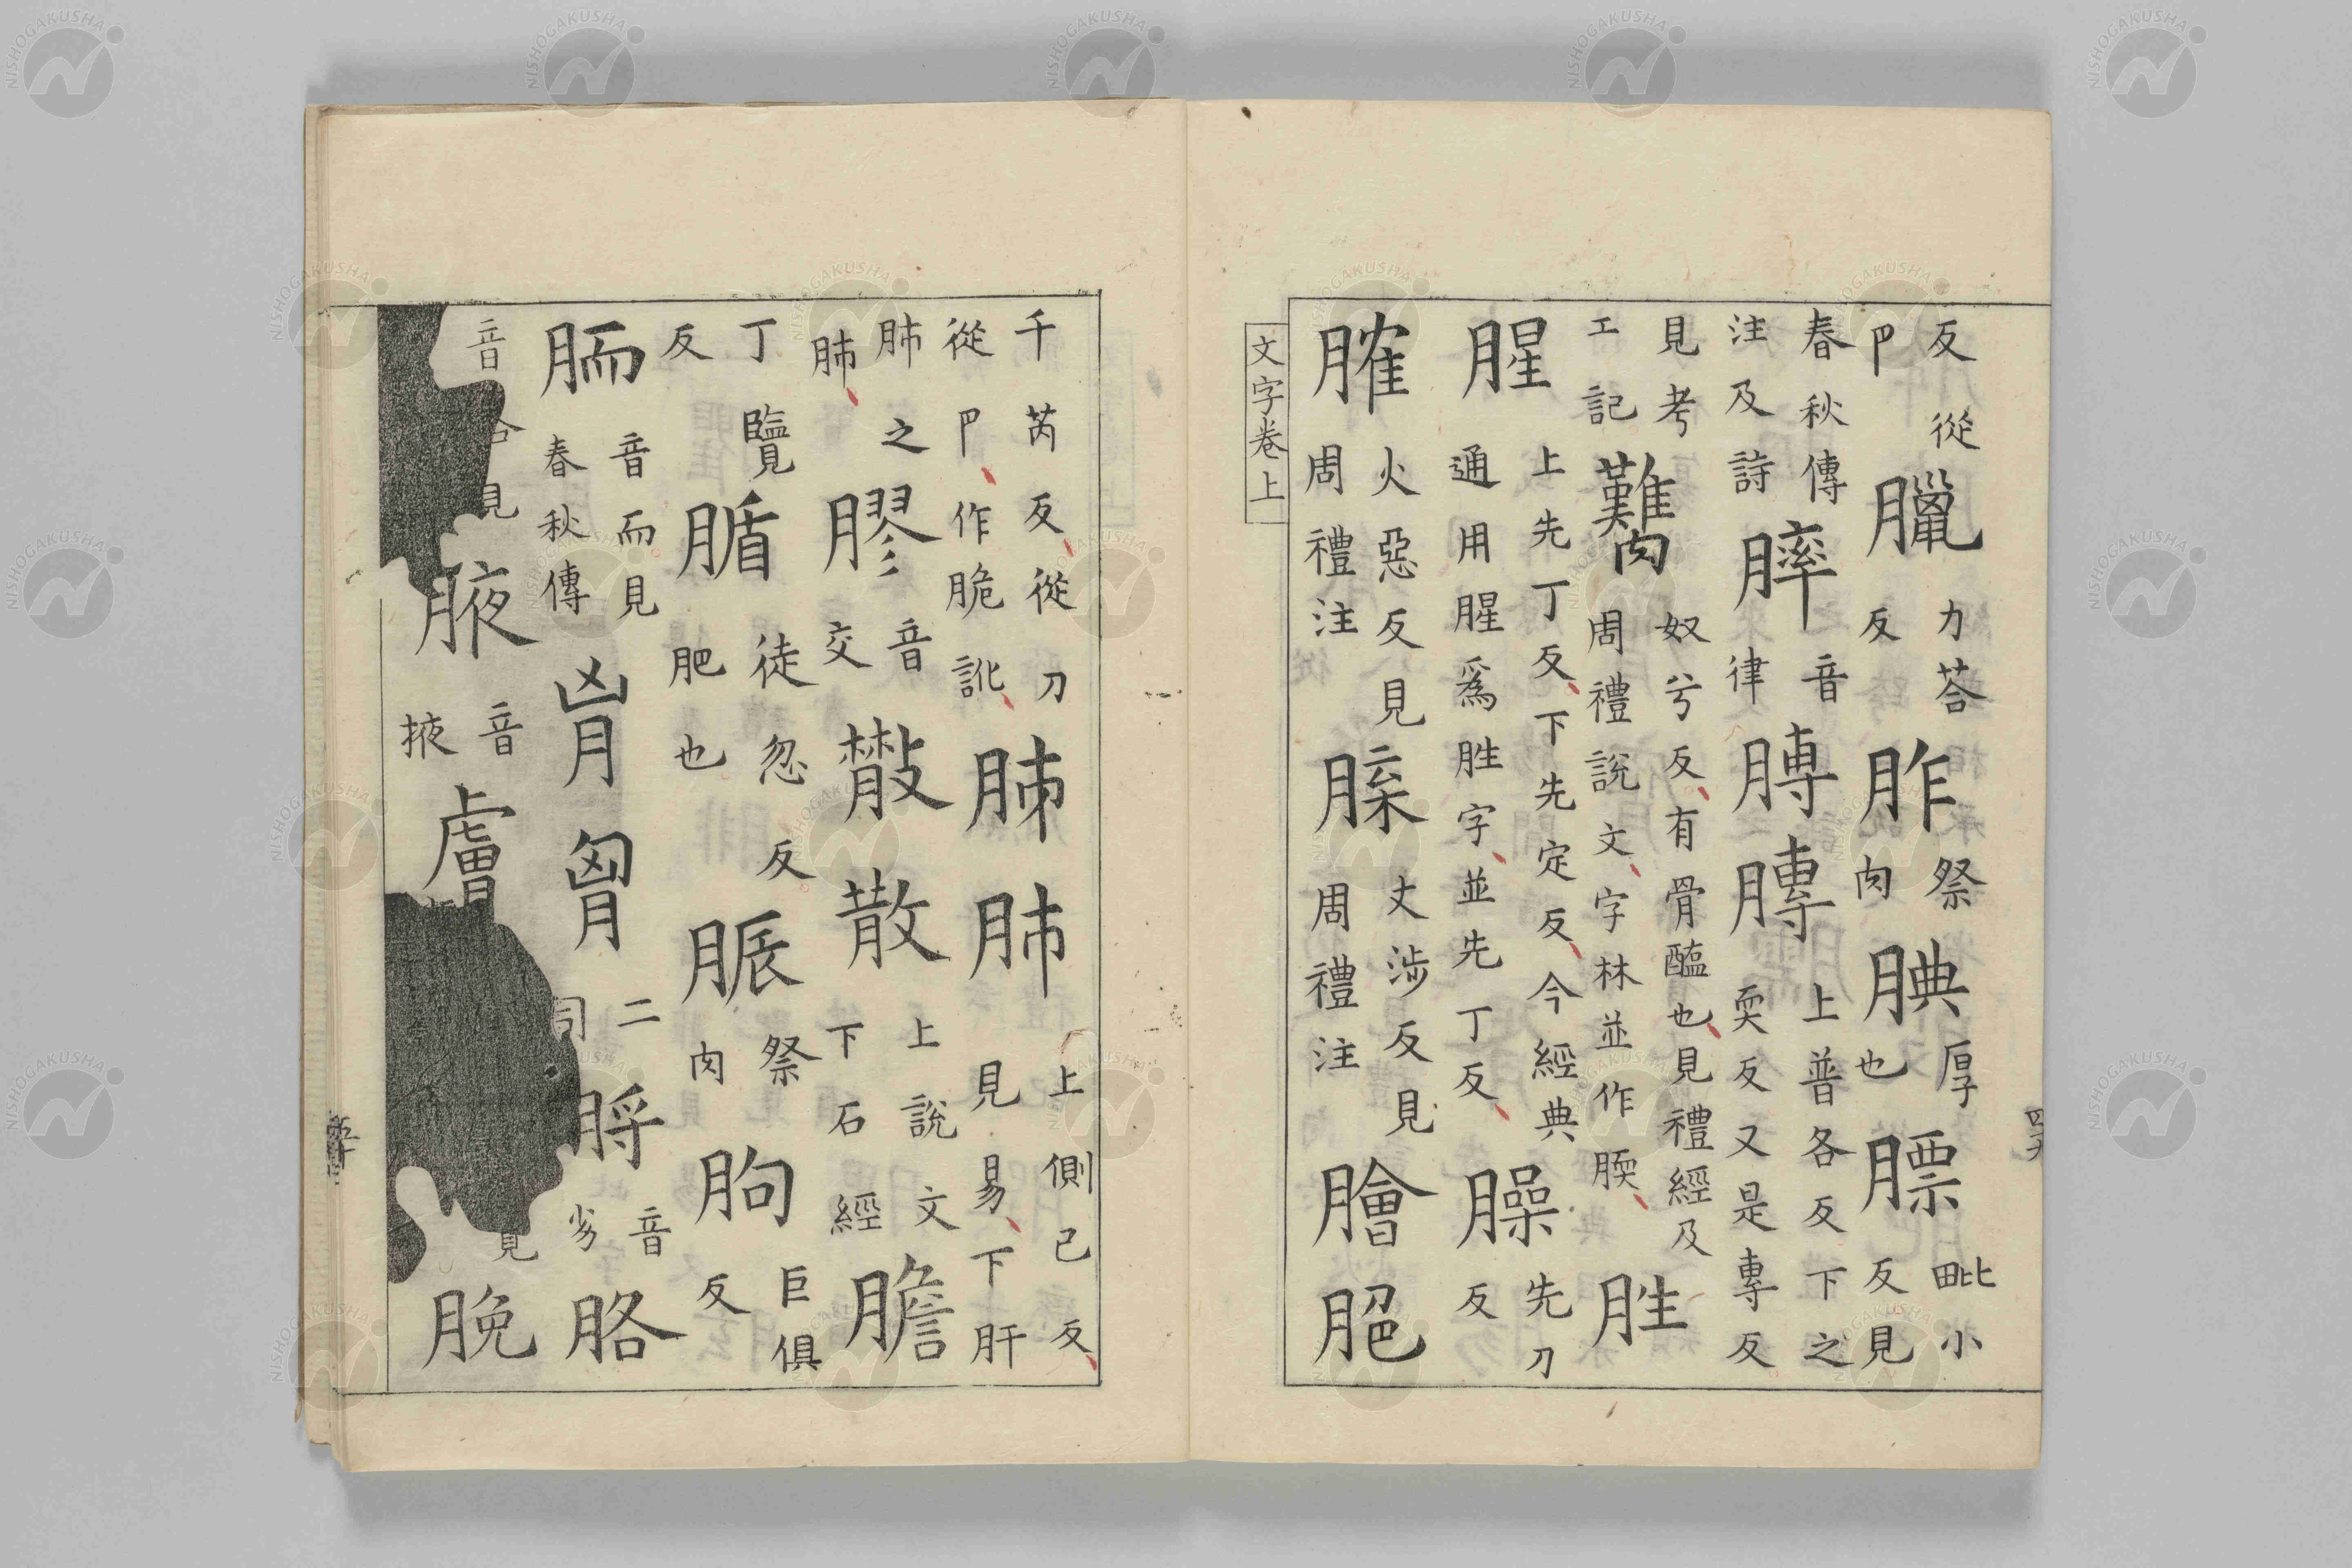 反從卪臘力荅反胙祭肉腆厚也膘毗小反見
春秋傳注及詩膟音律膊膞上普各反下之耎反又是專反
見考工記臡奴兮反有骨醢也見禮經及周禮說文字林並作腝胜
腥上先丁反下先定反今經典通用腥爲胜字並先丁反臊先刀反
䐨火惡反見周禮注丈涉反見周禮注膾脃
文字卷上
千芮反從刀從卪作脆訛胏肺上側己反見易下肝
肺之肺膠音交𢿱散上說文下石經膽
丁覽反腯徒忽反肥也脤祭肉朐巨俱反
胹音而見春秋傳胷二同脟音劣胳
音合見腋音掖膚見脕
五十